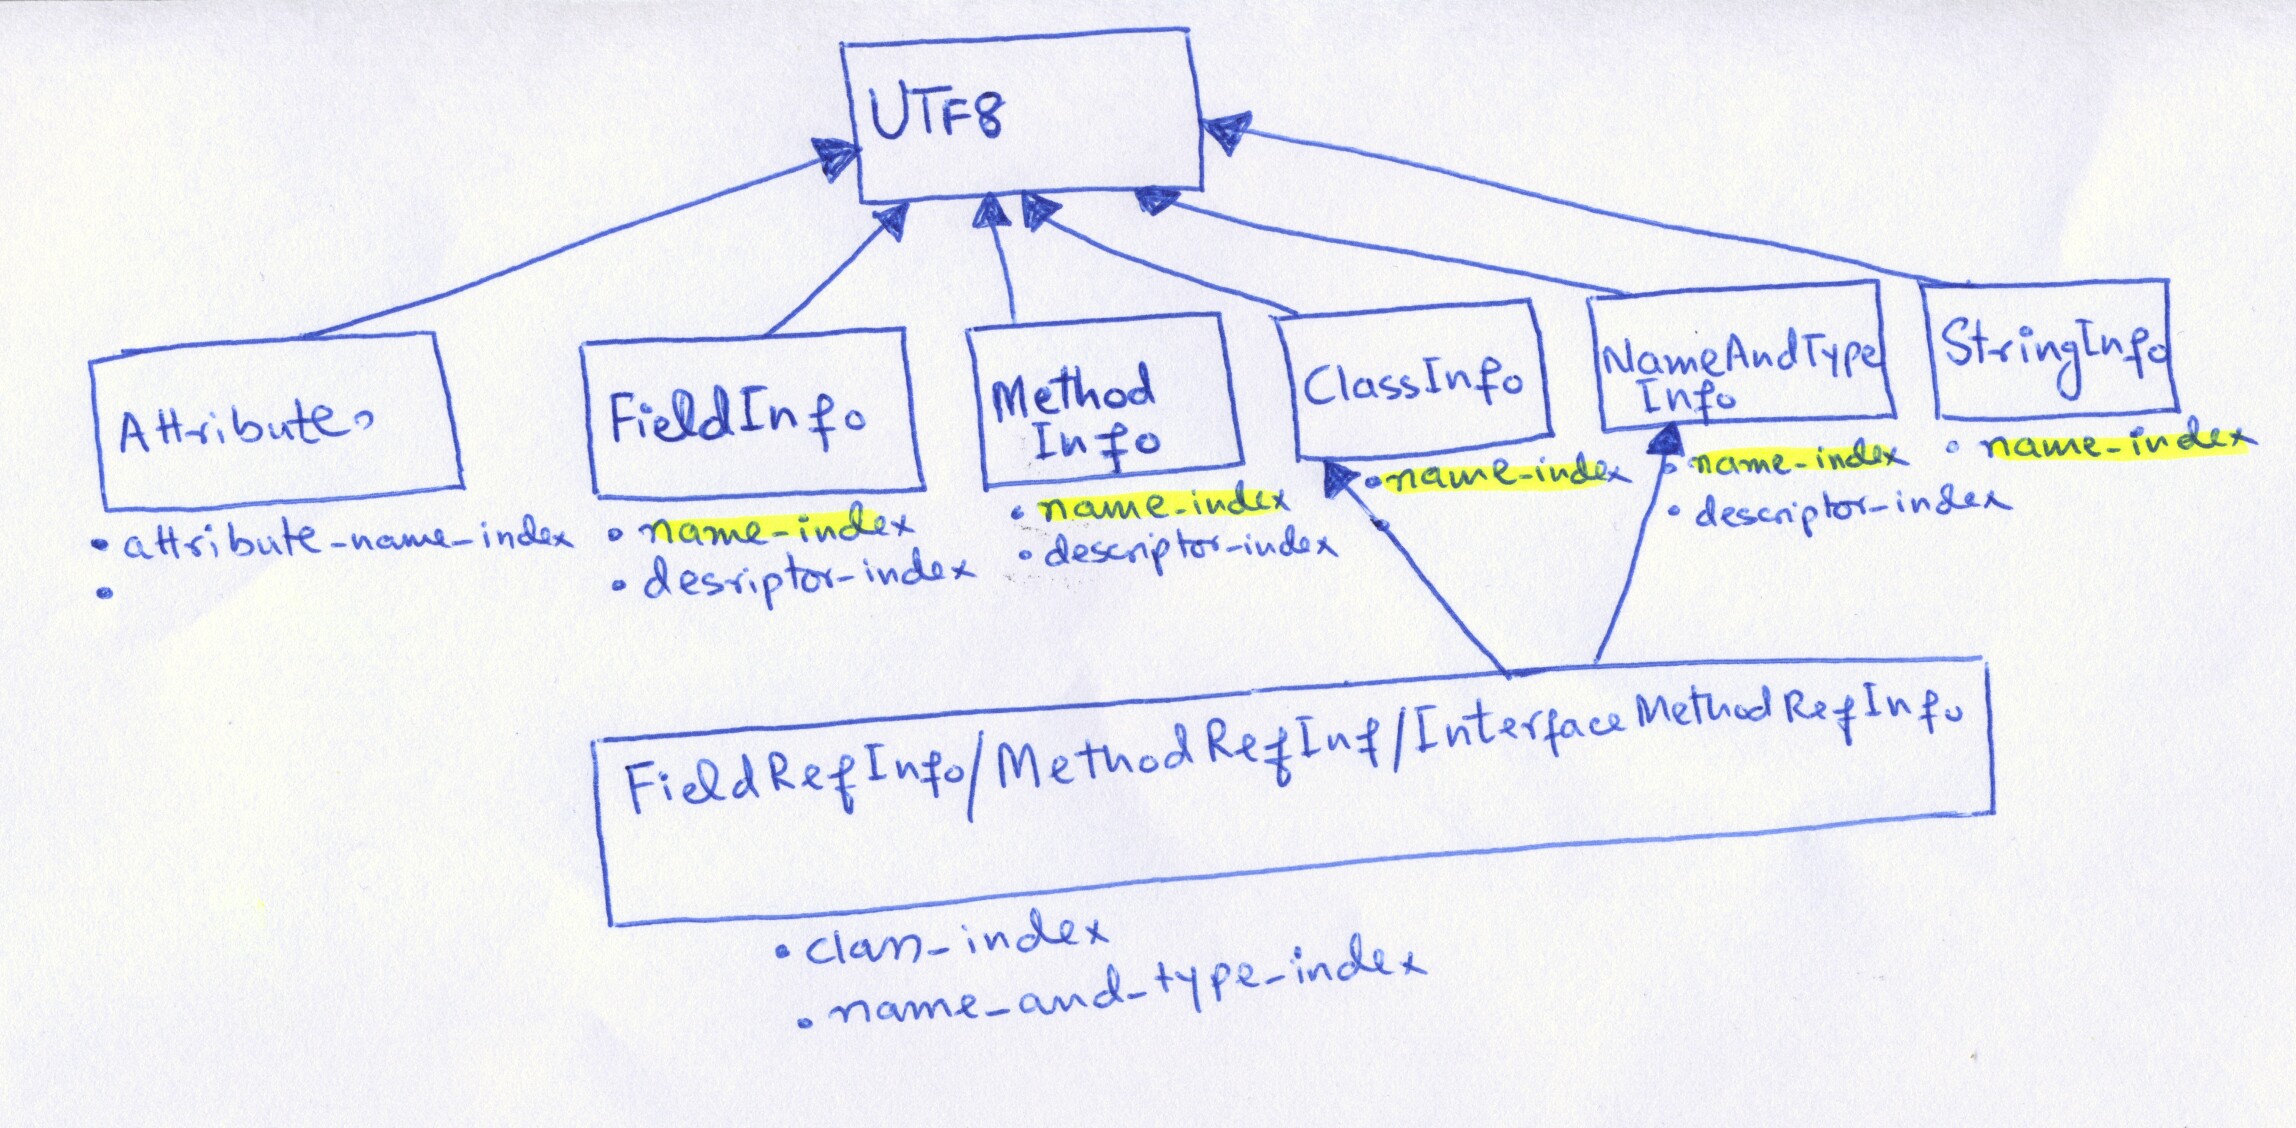 UTF8
Attributes
• attribute-name-index
•
FieldInfo
• name-index
• desriptor-index
Method
Info
• name-index
• descriptor-index
ClassInfo
• name-index
NameAndType
Info
• name-index
• descriptor-index
StringInfo
• name-index
FieldRefInfo/MethodRefInf/InterfaceMethodRefInfo
• class_index
• name_and_type_index